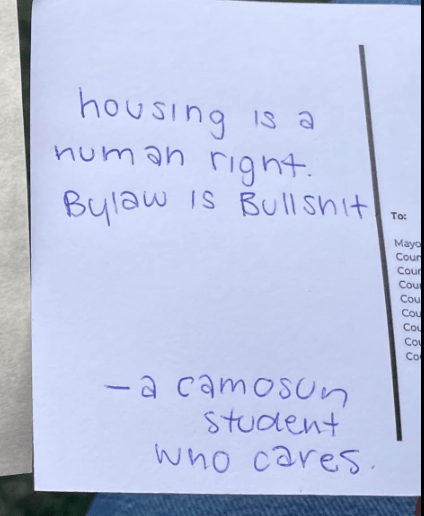 housing is a
human right.
Bylaw is Bullshit
- a camosun
student
who cares.
To:
Mayo
Coun
Coun
Coun
Cou
Cou
Cou
Cou
Co